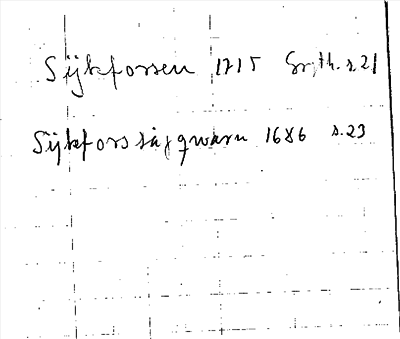 Sijkforsen 1715 Gr,th. s.21
Sijkfors sågqwarn 1686 s.23